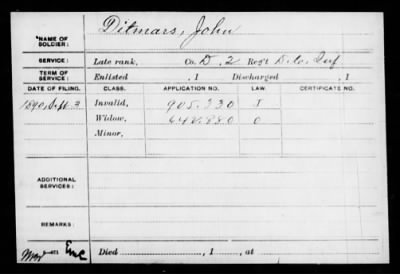 Ditmars, John
*NAME OF SOLDIER:
SERVICE: Late rank, Co. D, 2 Reg't D.C. Inf
TERM OF SERVICE: Enlisted , 1 Discharged , 1
DATE OF FILING. CLASS. APPLICATION NO. LAW. CERTIFICATE NO.
1890, Sept. 3 Invalid, 905.330 J
Widow, 442.880 O
Minor,
ADDITIONAL SERVICES:
REMARKS:
Died , 1 , at